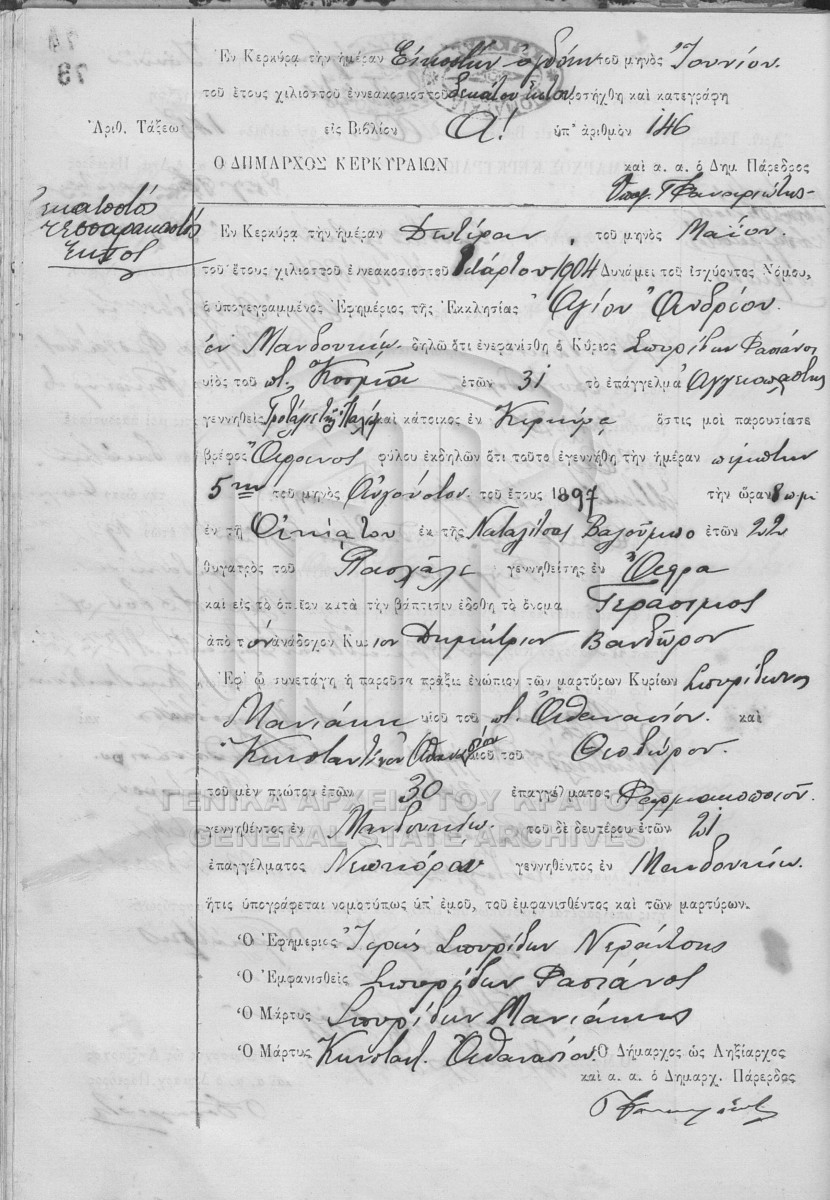 79
Ἐν Κερκύρᾳ τὴν ἡμέραν Εἰκοστὴν ὀγδόην τοῦ μηνὸς Ἰουνίου
τοῦ ἔτους χιλιοστοῦ ἐννεακοσιοστοῦ δεκάτου ἕκτου προσήχθη καὶ κατεγράφη
Ἀριθ. Τάξεως εἰς Βιβλίον Α! ὑπ' ἀριθμὸν 146
Ο ΔΗΜΑΡΧΟΣ ΚΕΡΚΥΡΑΙΩΝ καὶ α. α. ὁ Δημ. Πάρεδρος
ἑκατοστὸς
τεσσαρακοστὸς
ἕκτος
Ἐν Κερκύρᾳ τὴν ἡμέραν Δευτέραν τοῦ μηνὸς Μαΐου
τοῦ ἔτους χιλιοστοῦ ἐννεακοσιοστοῦ τετάρτου 1904 Δυνάμει τοῦ ἰσχύοντος Νόμου,
ὁ ὑπογεγραμμένος Ἐφημέριος τῆς Ἐκκλησίας Ἁγίου Ἀνδρέου
ἐν Μανδουκίῳ δηλῶ ὅτι ἐνεφανίσθη ὁ Κύριος Σπυρίδων Φασιάνος
υἱὸς τοῦ ποτ. Κοσμᾶ ἐτῶν 31 τὸ ἐπάγγελμα Ἀγγειοπλάστης
γεννηθεὶς καὶ κάτοικος ἐν Κερκύρᾳ ὅστις μοὶ παρουσίασε
βρέφος Ἄρρενος φύλου ἐκδηλῶν ὅτι τοῦτο ἐγεννήθη τὴν ἡμέραν πέμπτην
5ην τοῦ μηνὸς Αὐγούστου τοῦ ἔτους 1897 τὴν ὥραν 8 π.μ
ἐν τῇ Οἰκίᾳ του ἐκ τῆς Ναταλίτσας ἐτῶν 22
θυγατρὸς τοῦ Πασχάλε γεννηθείσης ἐν
καὶ εἰς τὸ ὁποῖον κατὰ τὴν βάπτισιν ἐδόθη τὸ ὄνομα Γεράσιμος
ἀπὸ τὸν ἀνάδοχον Κύριον Δημήτριον Βανδῶρον
Ἐφ' ᾧ συνετάγη ἡ παροῦσα πρᾶξις ἐνώπιον τῶν μαρτύρων Κυρίων Σπυρίδωνος
Μανιάκη υἱοῦ τοῦ ποτ. Ἀθανασίου καὶ
Κωνσταντίνου Ἀθανασίου υἱοῦ τοῦ Θεοδώρου
τοῦ μὲν πρώτου ἐτῶν 30 ἐπαγγέλματος Φαρμακοποιοῦ
ΓΕΝΙΚΑ ΑΡΧΕΙΑ ΤΟΥ ΚΡΑΤΟΥΣ
γεννηθέντος ἐν Μανδουκίῳ τοῦ δὲ δευτέρου ἐτῶν 21
GENERAL STATE ARCHIVES
ἐπαγγέλματος Νεωκόρου γεννηθέντος ἐν Μανδουκίῳ
ἥτις ὑπογράφεται νομοτύπως ὑπ' ἐμοῦ, τοῦ ἐμφανισθέντος καὶ τῶν μαρτύρων.
Ὁ Ἐφημέριος Ἱερεὺς Σπυρίδων Νεράντσης
Ὁ Ἐμφανισθεὶς Σπυρίδων Φασιάνος
Ὁ Μάρτυς Σπυρίδων Μανιάκης
Ὁ Μάρτυς Κωνσταντ. Ἀθανασίου Ὁ Δήμαρχος ὡς Ληξίαρχος
καὶ α. α. ὁ Δημαρχ. Πάρεδρος